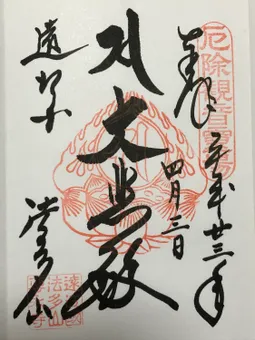 厄除観音霊場
奉拝
平成廿三年
四月三日
大悲殿
遠州
法多山
遠江国
法多山
尊永寺